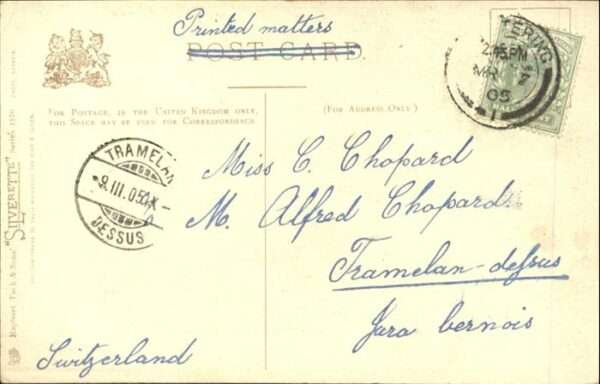 Printed matters
POST CARD.
FOR POSTAGE, IN THE UNITED KINGDOM ONLY,
THIS SPACE MAY BE USED FOR CORRESPONDENCE.
(FOR ADDRESS ONLY.)
TERING
2.45PM
MR 7
05
1
TRAMELAN
9.III.05.IX
DESSUS
Miss C. Chopard
M. Alfred Chopard
Tramelan-dessus
Jura bernois
Switzerland
Raphael Tuck & Sons' "SILVERETTE"